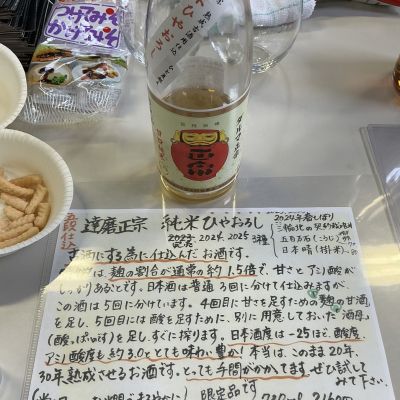 つけてみそ
かけてみそ
ひやおろし
ダルマ正宗
五段仕込
達磨正宗 純米ひやおろし
2023, 2024, 2025 3種
古酒にする為に仕込んだお酒です。
麹の割合が通常の約1.5倍で、甘さとアミノ酸が
しっかりあるとです。日本酒は普通3回に分けて仕込みますが、
この酒は5回に分けています。4回目に甘を足すための麹の甘酒
を足し、5回目には酸を足すために、別に用意しておいた酒母
(酸っぱいです)を足し、すぐに搾ります。日本酒度は-25ほど、酸度、
アミノ酸度も約3.0ととても味わい豊か!本当は、このまま20年、
30年熟成させるお酒です。とっても手間がかかってます。ぜひ試して
みて下さい。
限定品です
720ml
2024年春しぼり
三輪北の契約栽培米
五百万石(こうじ)
日本晴(掛米)